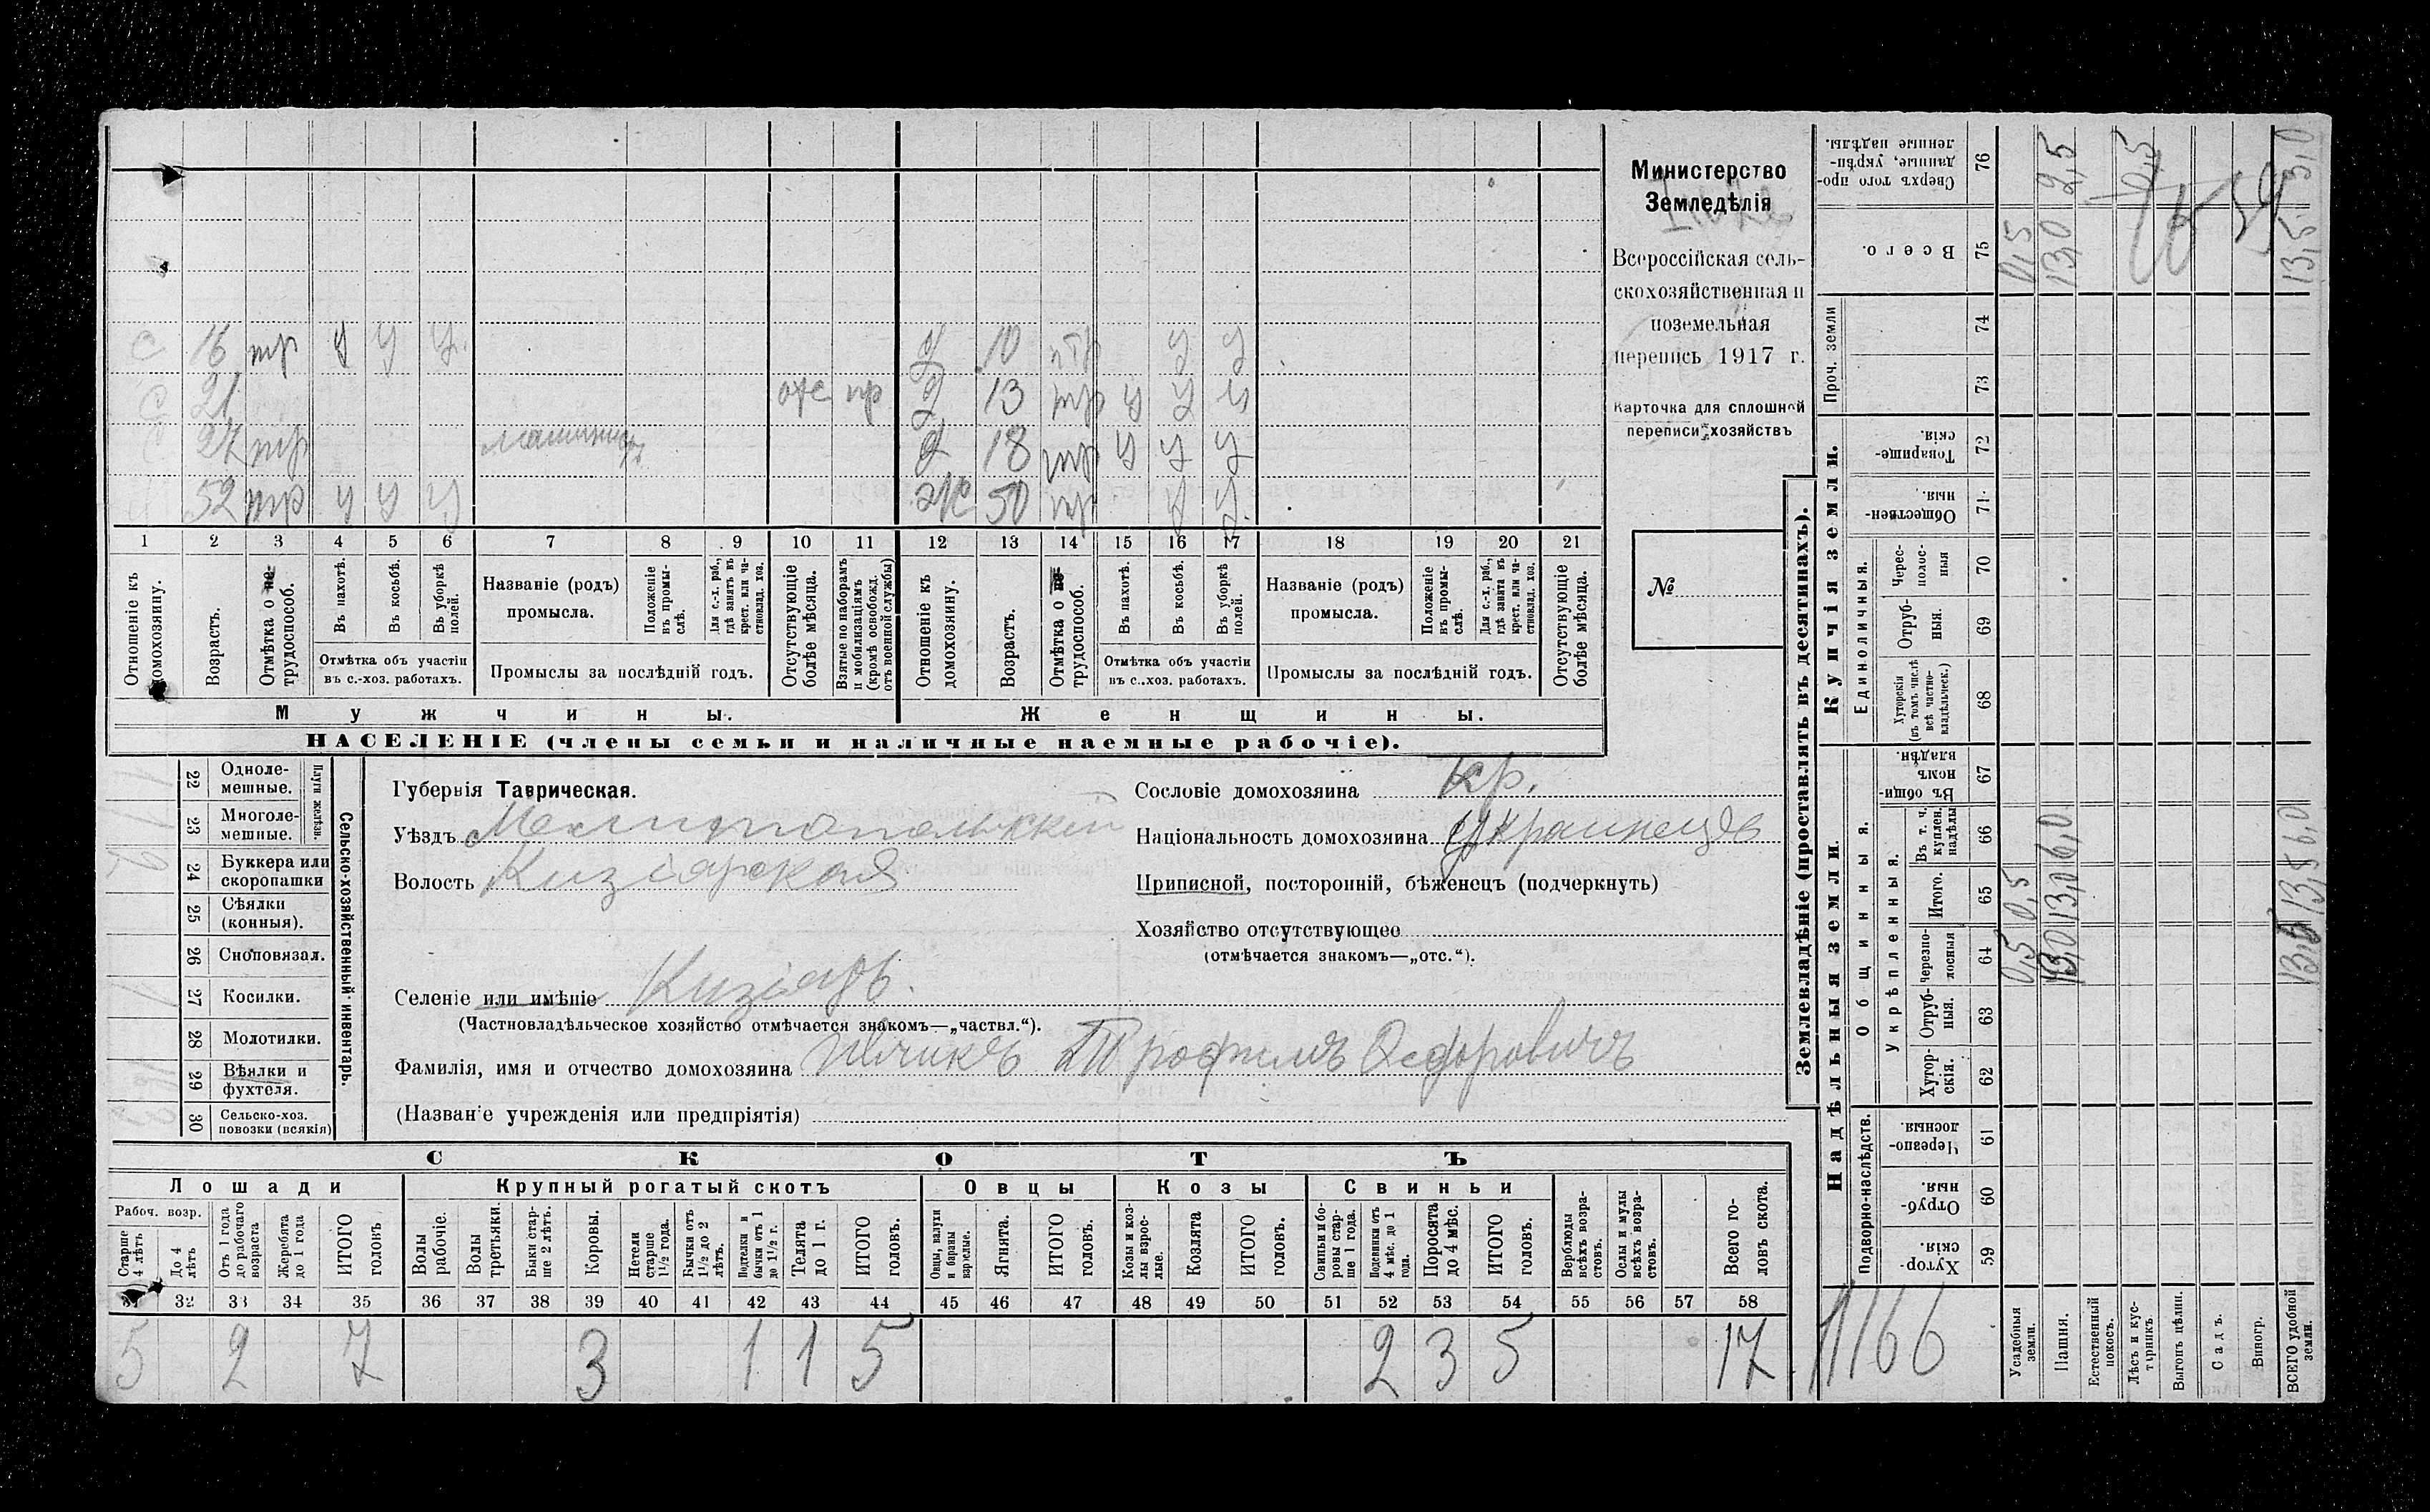 Министерство
Земледѣлія
Всероссійская сель-
скохозяйственная и
поземельная
перепись 1917 г.
Карточка для сплошной
переписи хозяйствъ
№
с 16 тр у у у д 10 у у
с 21 отс пр д 13 тр у у у
с 27 тр д 18 тр у у у
52 тр у у у ж 50 у у
1 2 3 4 5 6 7 8 9 10 11 12 13 14 15 16 17 18 19 20 21
Отношеніе къ домохозяину.
Возрастъ.
Отмѣтка о не-трудоспособ.
Въ пахотѣ.
Въ косьбѣ.
Въ уборкѣ полей.
Отмѣтка объ участіи въ с.-хоз. работахъ.
Названіе (родъ) промысла.
Положеніе въ промыслѣ.
Для с.-х. раб., гдѣ занятъ въ крест. или частновлад. хоз.
Промыслы за послѣдній годъ.
Отсутствующіе болѣе мѣсяца.
Взятые по наборамъ и мобилизаціямъ (кромѣ освобожд. отъ военной службы)
Отношеніе къ домохозяину.
Возрастъ.
Отмѣтка о не-трудоспособ.
Въ пахотѣ.
Въ косьбѣ.
Въ уборкѣ полей.
Отмѣтка объ участіи въ с.-хоз. работахъ.
Названіе (родъ) промысла.
Положеніе въ промыслѣ.
Для с.-х. раб., гдѣ занята въ крест. или частновлад. хоз.
Промыслы за послѣдній годъ.
Отсутствующіе болѣе мѣсяца.
Мужчины. Женщины.
НАСЕЛЕНІЕ (члены семьи и наличные наемные рабочіе).
Сельско-хозяйственный инвентарь.
Плуги желѣзн.
22 Одноле-мешные.
23 Многоле-мешные.
24 Буккера или скоропашки
25 Сѣялки (конныя).
26 Сноповязал.
27 Косилки.
28 Молотилки.
29 Вѣялки и фухтеля.
30 Сельско-хоз. повозки (всякія)
Губернія Таврическая.
Уѣздъ Мелитопольскій
Волость Кизіярская
Селеніе или имѣніе Кизіяръ.
(Частновладѣльческое хозяйство отмѣчается знакомъ—„частвл.“).
Фамилія, имя и отчество домохозяина Ивчикъ Трофимъ Федоровичъ
(Названіе учрежденія или предпріятія)
Сословіе домохозяина кр.
Національность домохозяина Украинецъ
Приписной, посторонній, бѣженецъ (подчеркнуть)
Хозяйство отсутствующее
(отмѣчается знакомъ—„отс.“).
СКОТЪ
Лошади Крупный рогатый скотъ Овцы Козы Свиньи
Рабоч. возр.
Старше 4 лѣтъ
До 4 лѣтъ
Отъ 1 года до рабочаго возраста
Жеребята до 1 года
ИТОГО головъ
Волы рабочіе.
Волы третьяки.
Быки старше 2 лѣтъ.
Коровы.
Нетели старше 1 1/2 года.
Бычки отъ 1 1/2 до 2 лѣтъ.
Подтелки и бычки отъ 1 до 1 1/2 г.
Телята до 1 г.
ИТОГО головъ.
Овцы, валухи и бараны взрослые.
Ягнята.
ИТОГО головъ.
Козы и козлы взрослые.
Козлята
ИТОГО головъ.
Свиньи и боровы старше 1 года.
Подсвинки отъ 4 мѣс. до 1 года.
Поросята до 4 мѣс.
ИТОГО головъ.
Верблюды всѣхъ возрастовъ.
Ослы и мулы всѣхъ возрастовъ.
Всего головъ скота.
32 33 34 35 36 37 38 39 40 41 42 43 44 45 46 47 48 49 50 51 52 53 54 55 56 57 58
5 2 7 3 1 1 5 2 3 5 17
1166
Землевладѣніе (проставлять въ десятинахъ).
Надѣльныя земли.
Купчія земли.
Проч. земли
Подворно-наслѣдств.
Общинныя.
Укрѣпленныя.
Единоличныя.
Хуторскія 59
Отрубныя. 60
Черезполосныя. 61
Хуторскія. 62
Отрубныя. 63
Черезполосныя 64
Итого. 65
Въ т. ч. куплен. надѣлы 66
Въ общинномъ владѣн. 67
Хуторскія (въ томъ числѣ всѣ частновладѣльческ.) 68
Отрубныя. 69
Чересполосныя 70
Общественныя. 71
Товарищескія. 72
73
74
Всего. 75
Сверхъ того проданные, укрѣпленные надѣлы. 76
Усадебныя земли. 0,5 0,5 0,5
Пашня. 13,0 13,0 6,0 13,0 2,5
Естественный покосъ.
Лѣсъ и кустарникъ. 0,5
Выгонъ цѣлин.
Садъ.
Виногр.
ВСЕГО удобной земли. 13,5 13,5 6,0 13,5 3,0